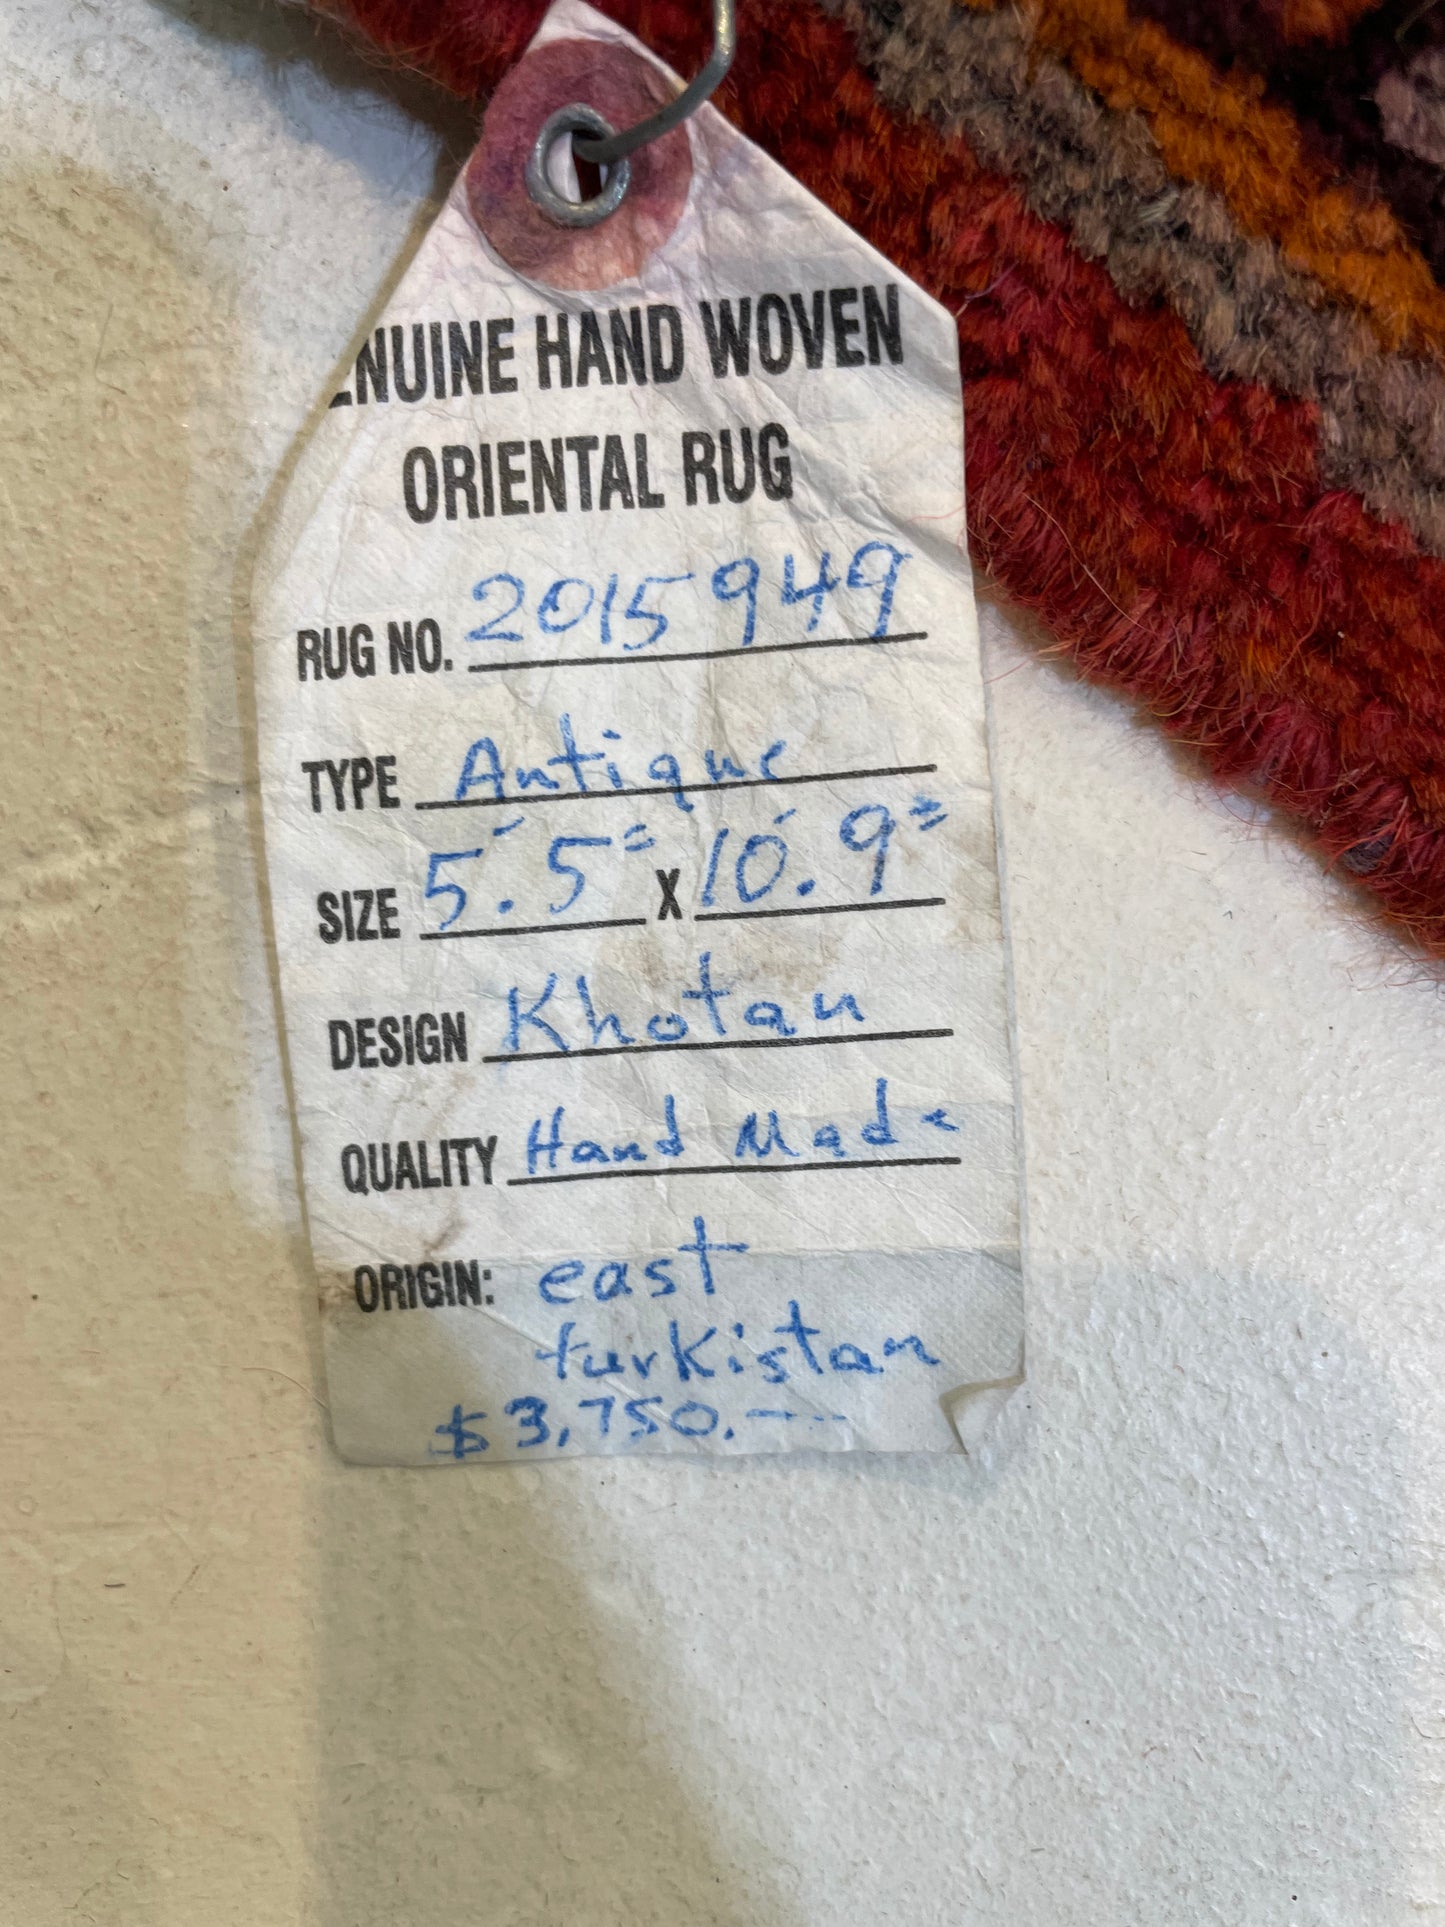 ENUINE HAND WOVEN
ORIENTAL RUG
RUG NO. 2015949
TYPE Antique
SIZE 5'.5" X 10'.9"
DESIGN Khotan
QUALITY Hand Made
ORIGIN: east
turkistan
$3,750.--